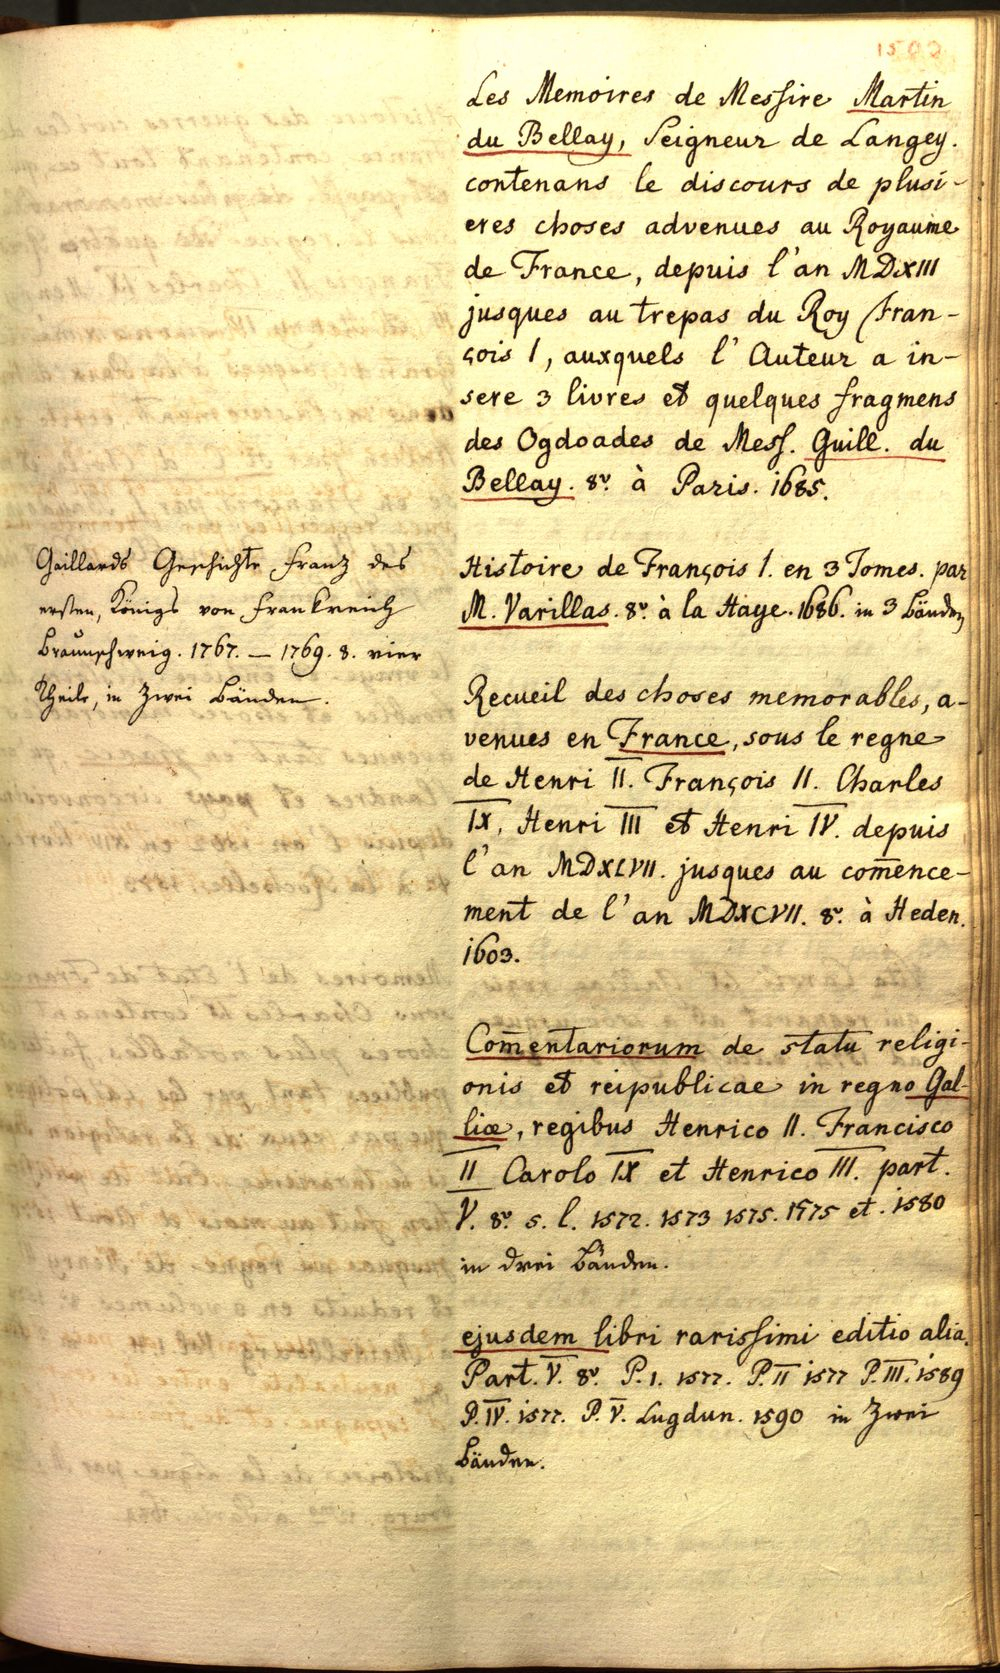 Les Memoires de Messire Martin
du Bellay, Seigneur de Langey.
contenans le discours de plusi-
eres choses advenues au Royaume
de France, depuis l'an MDXIII
jusques au trepas du Roy Fran-
çois I, auxquels l'Auteur a in-
sere 3 livres et quelques fragmens
des Ogdoades de Mess. Guill. du
Bellay. 8º. à Paris. 1685.
Gaillards Geschichte Franz des
ersten, Königs von Frankreich
Braunschweig. 1767. — 1769. 8. vier
Theile, in zwei Bänden.
Histoire de François I. en 3 Tomes. par
M. Varillas. 8º. à la Haye. 1686. in 3 Bänden
Recueil des choses memorables, a-
venues en France, sous le regne
de Henri II. François II. Charles
IX, Henri III et Henri IV. depuis
l'an MDXLVII. jusques au com̄ence-
ment de l'an MDXCVII. 8º. à Heden.
1603.
Com̄entariorum de statu religi-
onis et reipublicae in regno Gal-
liæ, regibus Henrico II. Francisco
II Carolo IX et Henrico III. part.
V. 8º. s. l. 1572. 1573 1575. 1575 et. 1580
in drei Bänden.
ejusdem libri rarissimi editio alia.
Part. V. 8º. P. I. 1577. P. II 1577 P. III. 1589
P. IV. 1577. P. V. Lugdun. 1590 in zwei
Bänden.